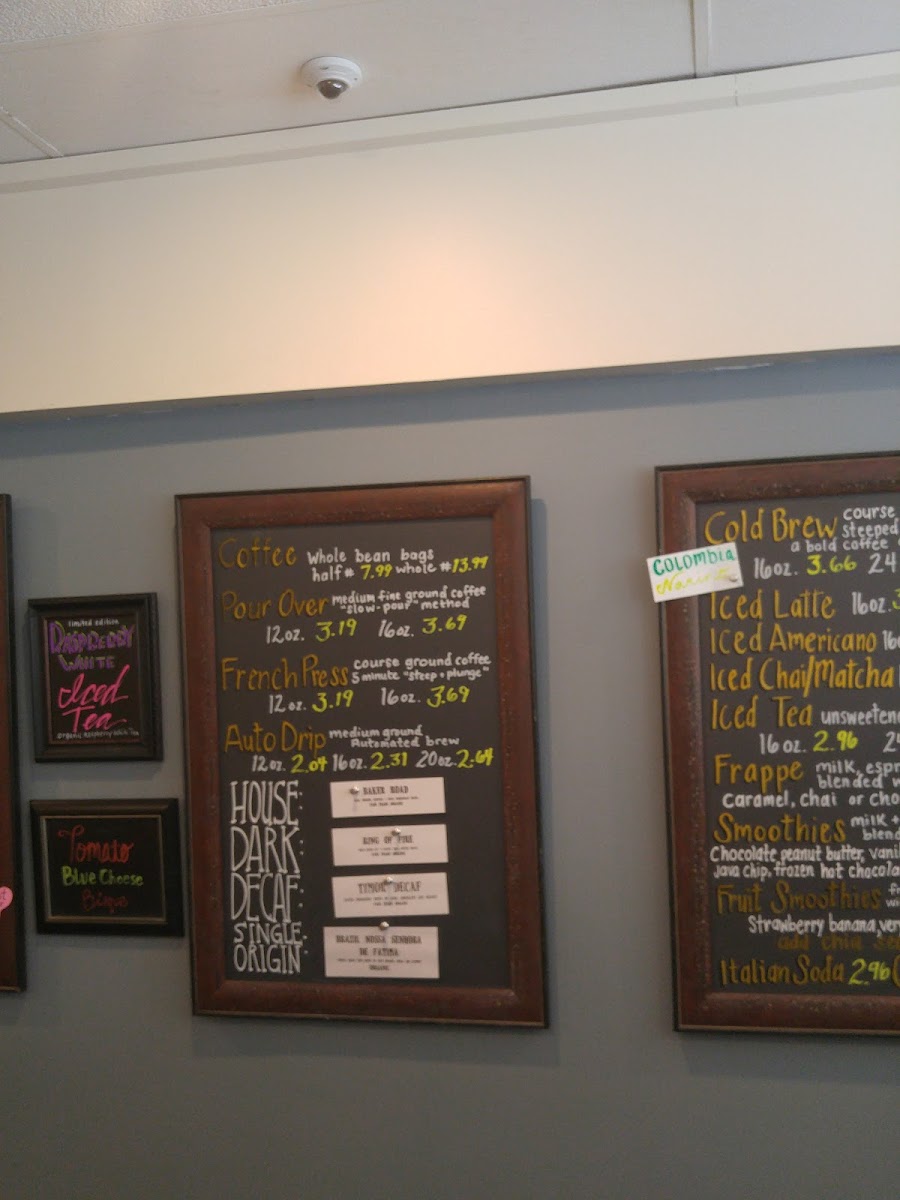 limited edition
RASPBERRY
WHITE
Iced
Tea
organic Raspberry White Tea
Tomato
Blue Cheese
Bisque
Coffee Whole bean bags
half# 7.99 whole #13.99
Pour Over medium fine ground coffee
"slow-pour" method
12oz. 3.19 16oz. 3.69
French Press course ground coffee
5 minute "steep + plunge"
12oz. 3.19 16oz. 3.69
Auto Drip medium ground
Automated brew
12oz. 2.04 16oz. 2.31 20oz. 2.64
HOUSE: BAKER ROAD
DARK: RING OF FIRE
DECAF: TIMOR DECAF
SINGLE ORIGIN: BRAZIL NOSSA SENHORA
DE FATIMA
Cold Brew course
steeped
a bold coffee
COLOMBIA
16oz. 3.66 24
Iced Latte 16oz.
Iced Americano 16
Iced Chai/Matcha
Iced Tea unsweetene
16oz. 2.96
Frappe milk, espr
blended w
Caramel, chai or cho
Smoothies milk +
blend
Chocolate peanut butter, vanil
Java chip, frozen hot chocola
Fruit Smoothies fr
wi
Strawberry banana, ver
add chia se
Italian Soda 2.96